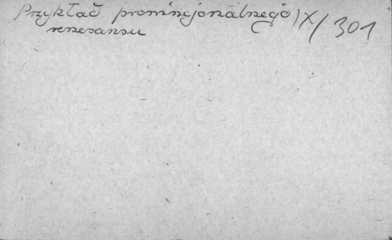 Przykład prowincjonalnego X/301
renesansu